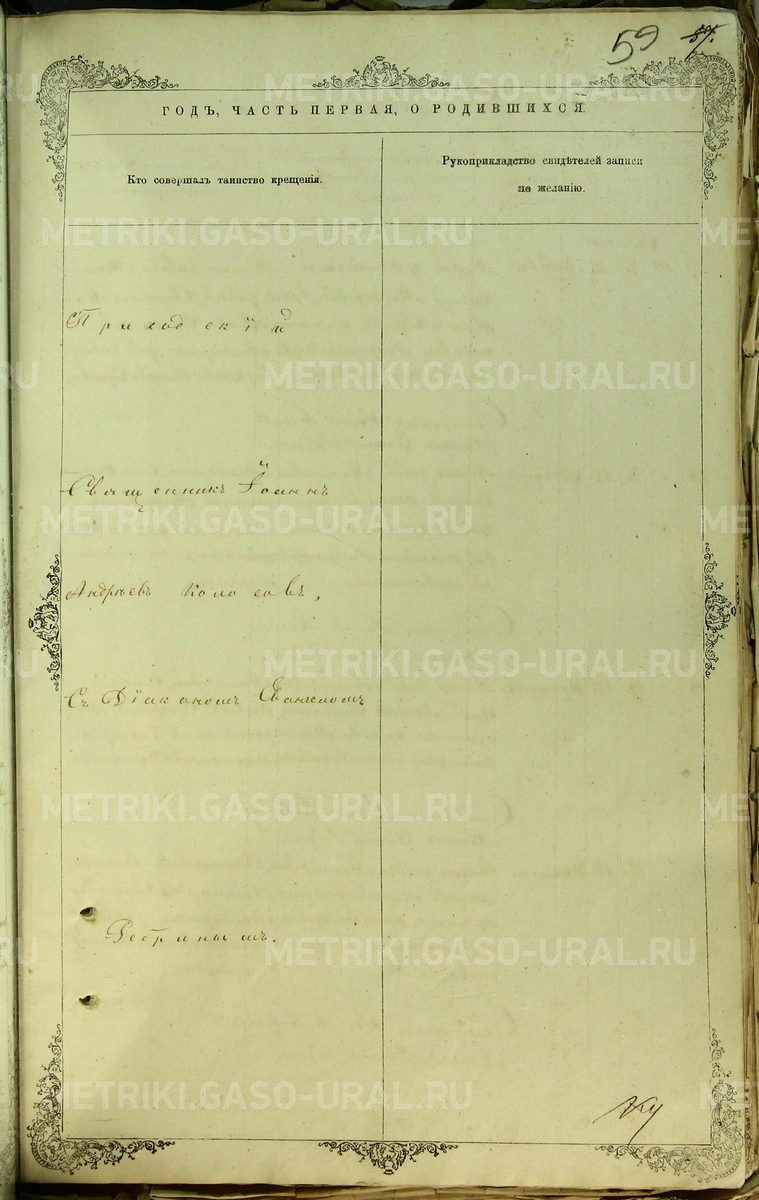 59 57.
ГОДЪ, ЧАСТЬ ПЕРВАЯ, О РОДИВШИХСЯ.
Кто совершалъ таинство крещенія.
Рукоприкладство свидѣтелей записи
по желанію.
Приходскій
Священникъ Іоаннъ
Андреевъ Колосовъ,
Съ Діакономъ Евангеломъ
METRIKI.GASO-URAL.RU